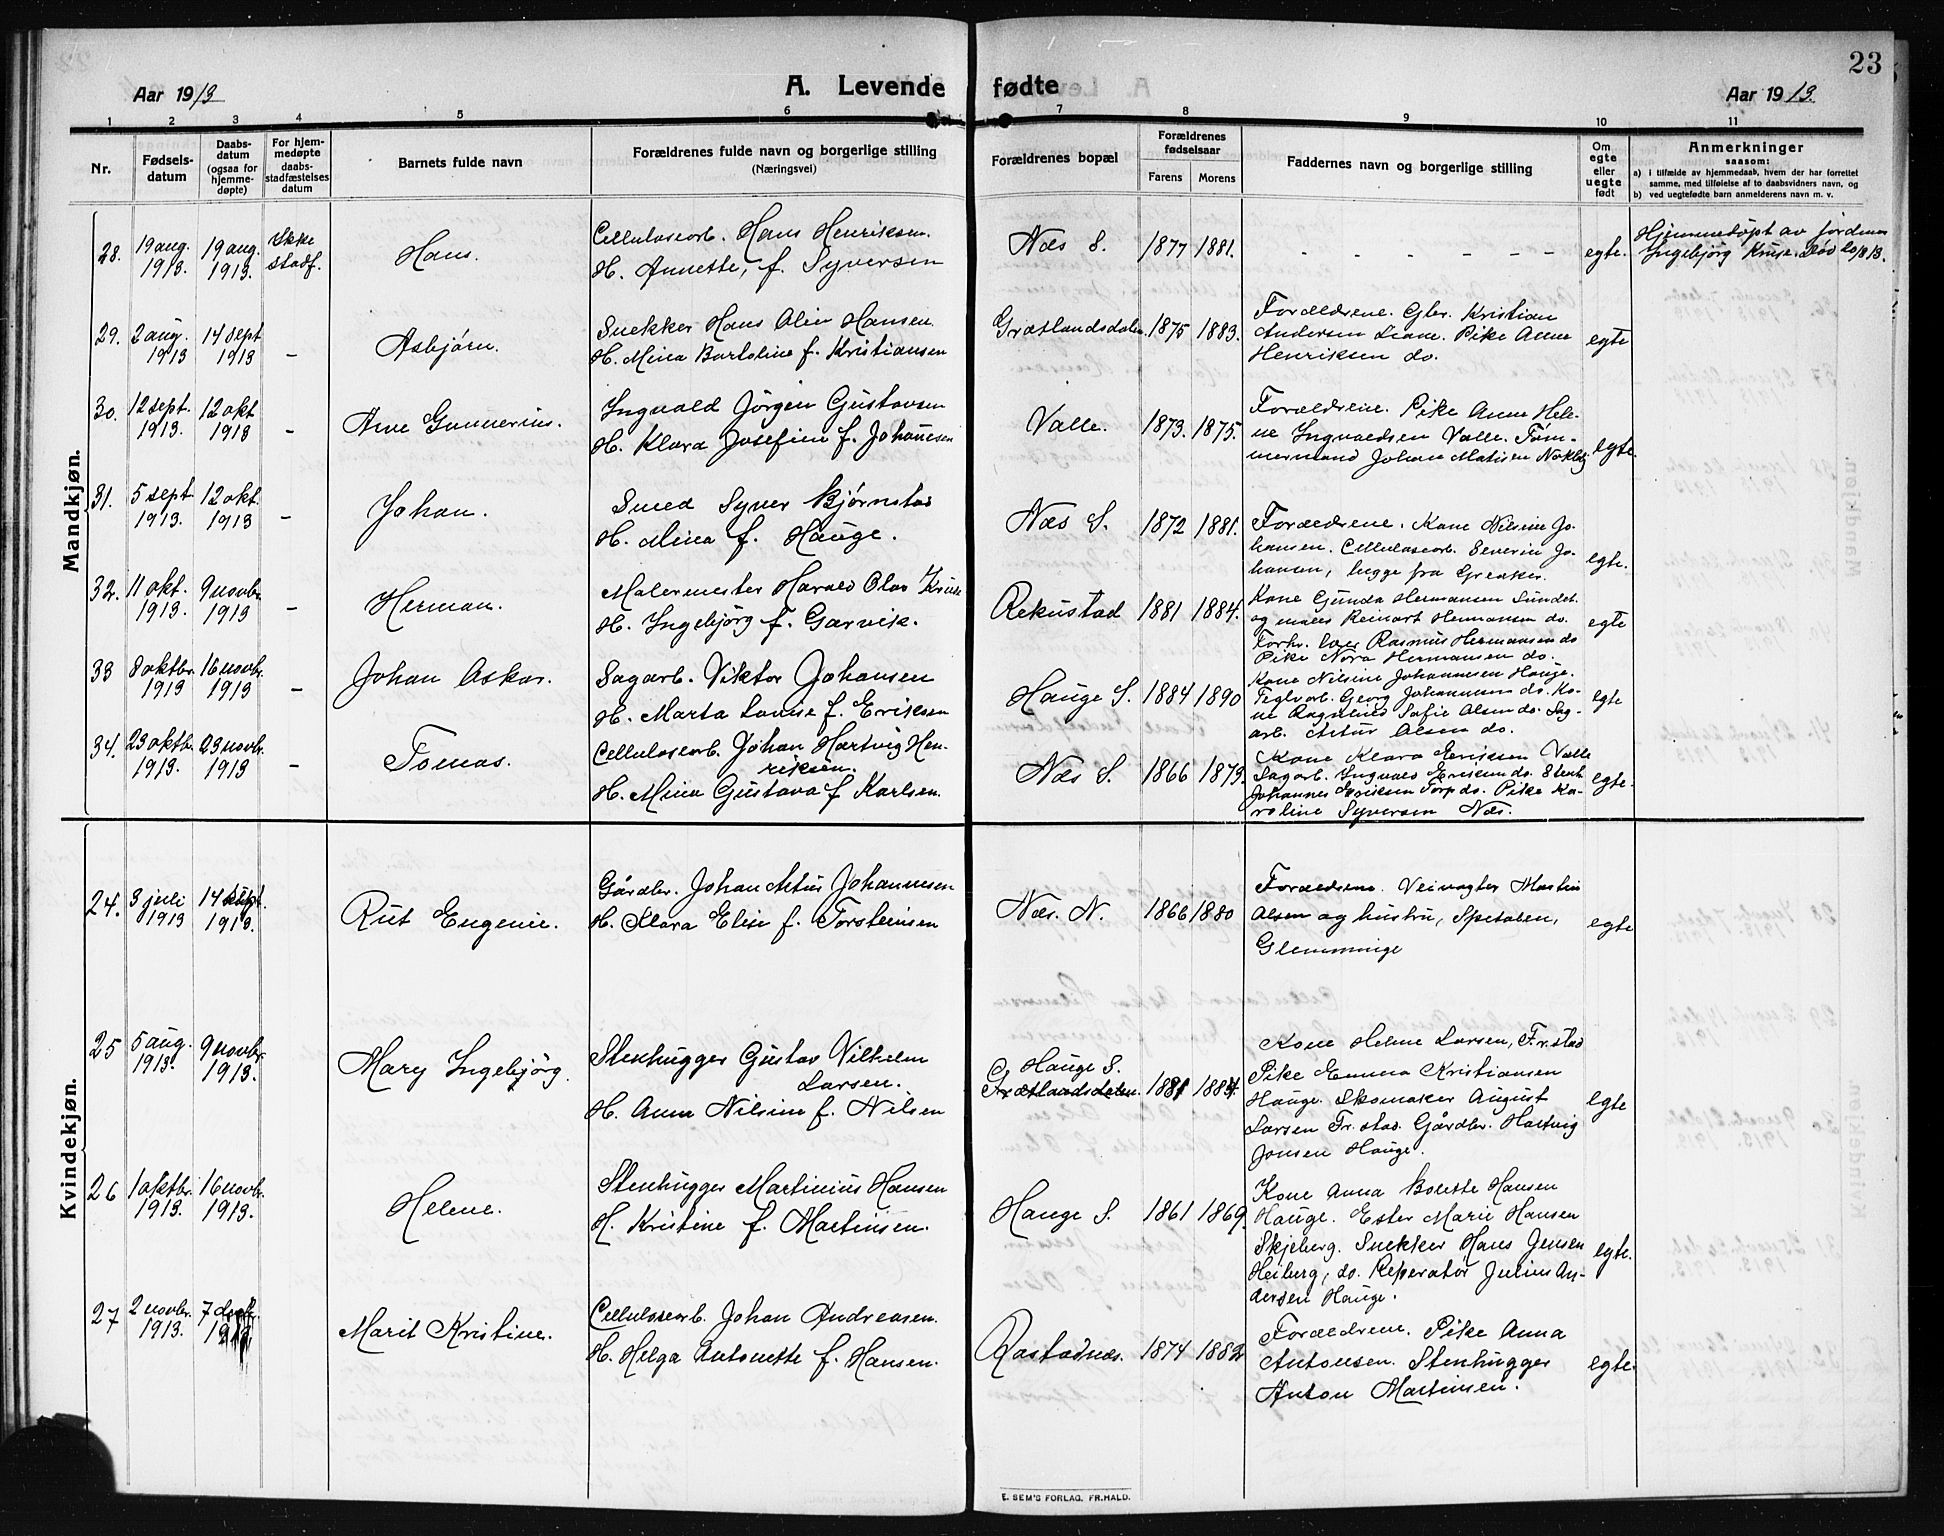 23
Aar 1913
A. Levende fødte
Aar 1913.
1 2 3 4 5 6 7 8 9 10 11
Nr.
Fødsels-
datum
Daabs-
datum
(ogsaa for
hjemme-
døpte)
For hjem-
medøpte
daabs-
stadfæstelses
datum
Barnets fulde navn
Forældrenes fulde navn og borgerlige stilling
(Næringsvei)
Forældrenes bopæl
Forældrenes
fødselsaar
Farens Morens
Faddernes navn og borgerlige stilling
Om
egte
eller
uegte
født
Anmerkninger
saasom:
a) i tilfælde av hjemmedaab, hvem der har forrettet
samme, med tilføielse af to daabsvidners navn, og
b) ved uegtefødte barn anmelderens navn m. v.
Mandkjøn.
28. 19 aug. 1913. 19 aug. 1913. Ikke stadf.
Hans.
Celluloseorb. Hans Henriksen.
H. Annette, f. Syversen
Næs S. 1877 1881.
- - - - - - -
egte.
Hjemmedøpt av jordmor
Ingebjørg Kruse. Død 20/8 13.
29. 2 aug. 1913 14 sept 1913 -
Asbjørn.
Snekker Hans Olin Hansen.
H. Mina Bartoline f. Kristiansen
Grætlandsdalen. 1875 1883.
Forældrene. Gbr. Kristian
Andersen Liane. Pike Anne
Henriksen do.
egte
30. 12 sept. 1913. 12 okt 1913 -
Arne Gunnerius.
Ingvald Jörgen Gustavsen
H. Klara Josefine f. Johannesen
Valle. 1873. 1875.
Forældrene. Pike Anne Hele-
ne Ingvaldsen Valle. Töm-
mermand Johan Matisen
egte.
31. 5 sept. 1913. 12 okt. 1913 -
Johan.
Smed Syver Bjørnstad
H. Mina f. Hauge.
Næs S. 1872 1881.
Forældrene. Kone Nilsine Jo-
hansen. Celluloseorb. Severin Jo-
hansen, begge fra Greaker.
egte.
32. 11 okt. 1913. 9 novbr. 1913 -
Herman.
Malermester Harald Olav Kruse
H. Ingebjörg f. Garvik.
Rekustad 1881 1884.
Kone Gunda Hermansen Sundet.
og maler Reinart Hermansen do.
Forhv. lær Rasmus Hermansen do
Pike Nora Hermansen do.
egte
33 8 oktbr. 1913 16 novbr. 1913 -
Johan Oskar.
Sagarb. Viktor Johansen
H. Marta Lovise f. Eriksen
Hauge S. 1884 1890
Kone Nilsine Johannesen Hauge.
Teglvarb. Georg Johannesen do. Ko-
ne Ragnhild Sofie Olsen do. Sag-
arb. Artur Olsen do.
egte
34. 23 oktbr. 1913. 23 novbr. 1913 -
Tomas.
Celluloseorb. Johan Hartvig Hen-
riksen.
H. Mina Gustava f Karlsen.
Næs S. 1866 1873.
Kone Klara Eriksen Valle
Sagarb. Ingvald Eriksen do. Stenh.
Johannes Eriksen Torp do. Pike Ka-
roline Syversen Næs.
egte.
Kvindekjøn.
24. 3 juli 1913 14 sept. 1913.
Rut Eugenie.
Gårdbr. Johan Artur Johannesen
H. Klara Elise f. Torsteinsen
Næs. N. 1866 1880
Forældrene. Veivogter Martin
Olsen og hustru, Spetalen,
Glemminge
egte
25 5 aug. 1913. 9 novbr. 1913.
Mary Ingebjörg.
Stenhugger Gustav Vilhelm
Larsen.
H. Anna Nilsine f. Nilsen
Hauge S.
Grætlandsdalen. 1881 1884.
Kone Helene Larsen, Fr. stad
Pike Emma Kristiansen
Hauge. Skomaker August
Larsen Fr. stad. Gårdbr. Hartvig
Jonsen Hauge.
egte
26 1 oktbr. 1913. 16 novbr. 1913.
Helene.
Stenhugger Martinius Hansen
H. Kristine f. Martinsen.
Hauge S. 1861 1869.
Kone Anna Bolette Hansen
Hauge. Ester Marie Hansen
Skjeberg. Snekker Hans Jensen
Heiberg, do. Reperatör Julius An-
dersen Hauge.
egte.
27 2 novbr. 1913. 7
Marit Kristine.
Celluloseorb. Johan Andreasen.
H. Helga Antonette f. Hansen.
Rostadnes. 1874 1882
Forældrene. Pike Anna
Antonsen. Stenhugger
Anton Martinsen.
egte.
E. SEM'S FORLAG, FR.HALD.